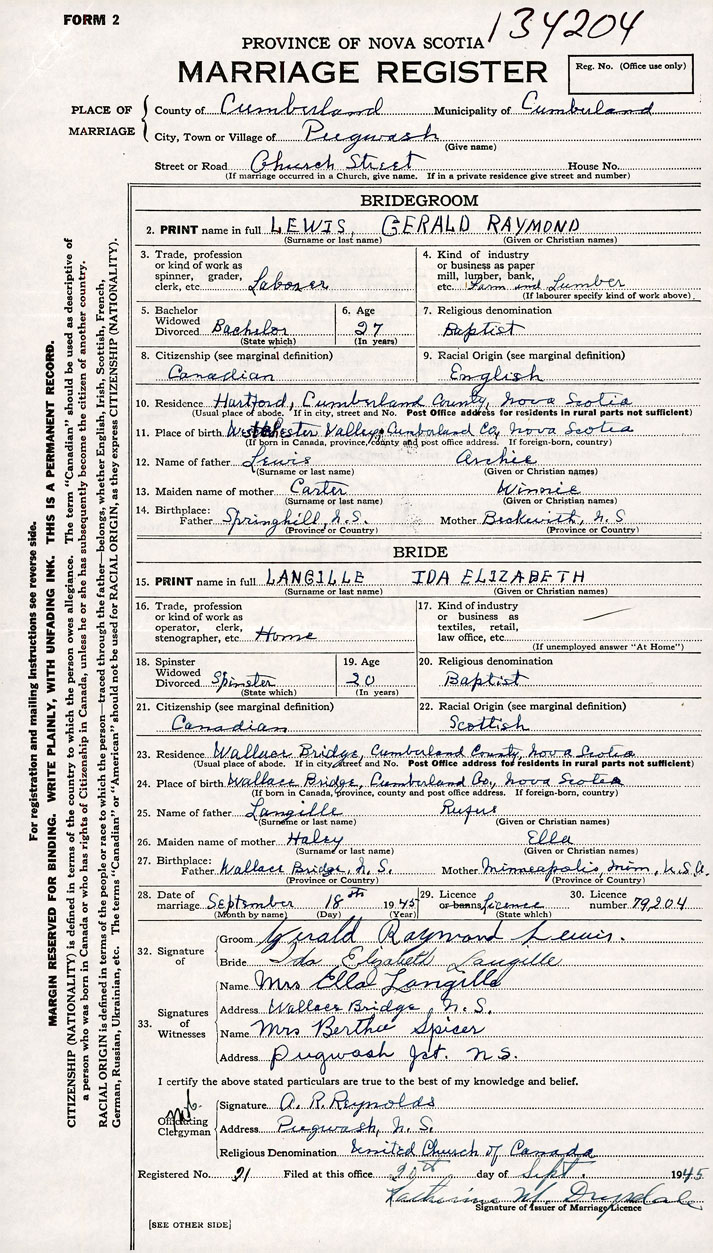 FORM 2
134204
PROVINCE OF NOVA SCOTIA
MARRIAGE REGISTER
Reg. No. (Office use only)
PLACE OF MARRIAGE
County of Cumberland Municipality of Cumberland
City, Town or Village of Pugwash
(Give name)
Street or Road Church Street House No.
(If marriage occurred in a Church, give name. If in a private residence give street and number)
BRIDEGROOM
2. PRINT name in full LEWIS, GERALD RAYMOND
(Surname or last name) (Given or Christian names)
3. Trade, profession or kind of work as spinner, grader, clerk, etc Laborer
4. Kind of industry or business as paper mill, lumber, bank, etc. Farm and Lumber
(If labourer specify kind of work above)
5. Bachelor Widowed Divorced Bachelor
(State which)
6. Age 27
(In years)
7. Religious denomination
Baptist
8. Citizenship (see marginal definition)
Canadian
9. Racial Origin (see marginal definition)
English
10. Residence Hartford, Cumberland County, Nova Scotia
(Usual place of abode. If in city, street and No. Post Office address for residents in rural parts not sufficient)
11. Place of birth Westchester Valley, Cumberland Co, Nova Scotia
(If born in Canada, province, county and post office address. If foreign-born, country)
12. Name of father Lewis Archie
(Surname or last name) (Given or Christian names)
13. Maiden name of mother Carter Winnie
(Surname or last name) (Given or Christian names)
14. Birthplace: Father Springhill, N.S. Mother Beckwith, N.S
(Province or Country) (Province or Country)
BRIDE
15. PRINT name in full LANGILLE IDA ELIZABETH
(Surname or last name) (Given or Christian names)
16. Trade, profession or kind of work as operator, clerk, stenographer, etc Home
17. Kind of industry or business as textiles, retail, law office, etc.
(If unemployed answer "At Home")
18. Spinster Widowed Divorced Spinster
(State which)
19. Age 20
(In years)
20. Religious denomination
Baptist
21. Citizenship (see marginal definition)
Canadian
22. Racial Origin (see marginal definition)
Scottish
23. Residence Wallace Bridge, Cumberland County, Nova Scotia
(Usual place of abode. If in city, street and No. Post Office address for residents in rural parts not sufficient)
24. Place of birth Wallace Bridge, Cumberland Co, Nova Scotia
(If born in Canada, province, county and post office address. If foreign-born, country)
25. Name of father Langille Rufus
(Surname or last name) (Given or Christian names)
26. Maiden name of mother Haley Ella
(Surname or last name) (Given or Christian names)
27. Birthplace: Father Wallace Bridge, N.S. Mother Minneapolis, Minn, U.S.A.
(Province or Country) (Province or Country)
28. Date of marriage September 18th 1945
(Month by name) (Day) (Year)
29. Licence or banns licence
(State which)
30. Licence number 79204
32. Signature of
Groom Gerald Raymond Lewis.
Bride Ida Elizabeth Langille
33. Signatures of Witnesses
Name Mrs Ella Langille
Address Wallace Bridge, N.S.
Name Mrs Bertha Spicer
Address Pugwash Jct. N S.
I certify the above stated particulars are true to the best of my knowledge and belief.
Officiating Clergyman
Signature A. R. Reynolds
Address Pugwash, N.S.
Religious Denomination United Church of Canada
Registered No. 21 Filed at this office 20th day of Sept. 1945
Katherine M. Drysdale
Signature of Issuer of Marriage Licence
[SEE OTHER SIDE]
For registration and mailing instructions see reverse side.
MARGIN RESERVED FOR BINDING. WRITE PLAINLY, WITH UNFADING INK. THIS IS A PERMANENT RECORD.
CITIZENSHIP (NATIONALITY) is defined in terms of the country to which the person owes allegiance. The term "Canadian" should be used as descriptive of
a person who was born in Canada or who has rights of Citizenship in Canada, unless he or she has subsequently become the citizen of another country.
RACIAL ORIGIN is defined in terms of the people or race to which the person—traced through the father—belongs, whether English, Irish, Scottish, French,
German, Russian, Ukrainian, etc. The terms "Canadian" or "American" should not be used for RACIAL ORIGIN, as they express CITIZENSHIP (NATIONALITY).